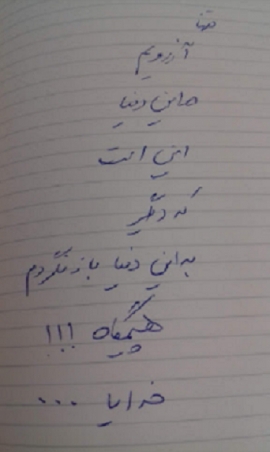 تنها
آرزویم
در این دنیا
این است
که دیگر
به این دنیا باز نگردم
هیچگاه !!!
خدایا ...